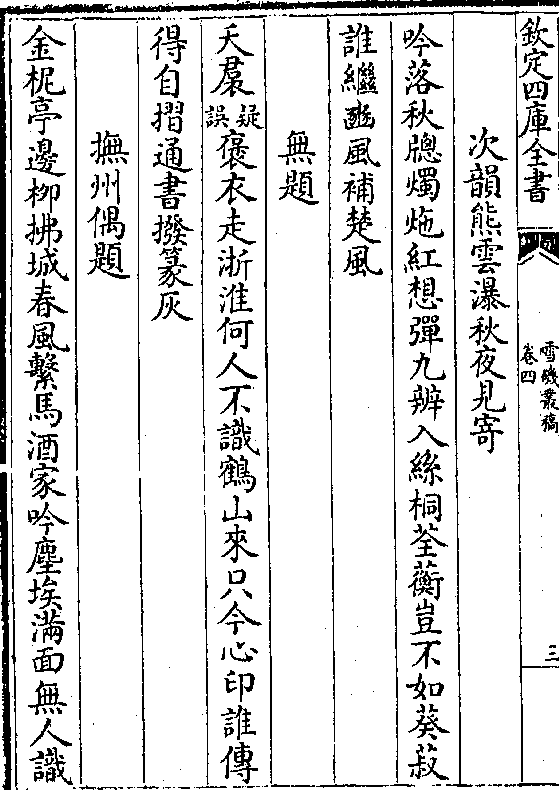 欽定四庫全書
雪磯叢稿
卷四
三
次韻熊雲瀑秋夜見寄
吟落秋牕燭灺紅想彈九辨入絲桐荃蘅豈不如葵菽
誰繼豳風補楚風
無題
天裠疑誤褒衣走浙淮何人不識鶴山來只今心印誰傳
得自摺通書撥篆灰
撫州偶題
金柅亭邊柳拂城春風繫馬酒家吟塵埃滿面無人識